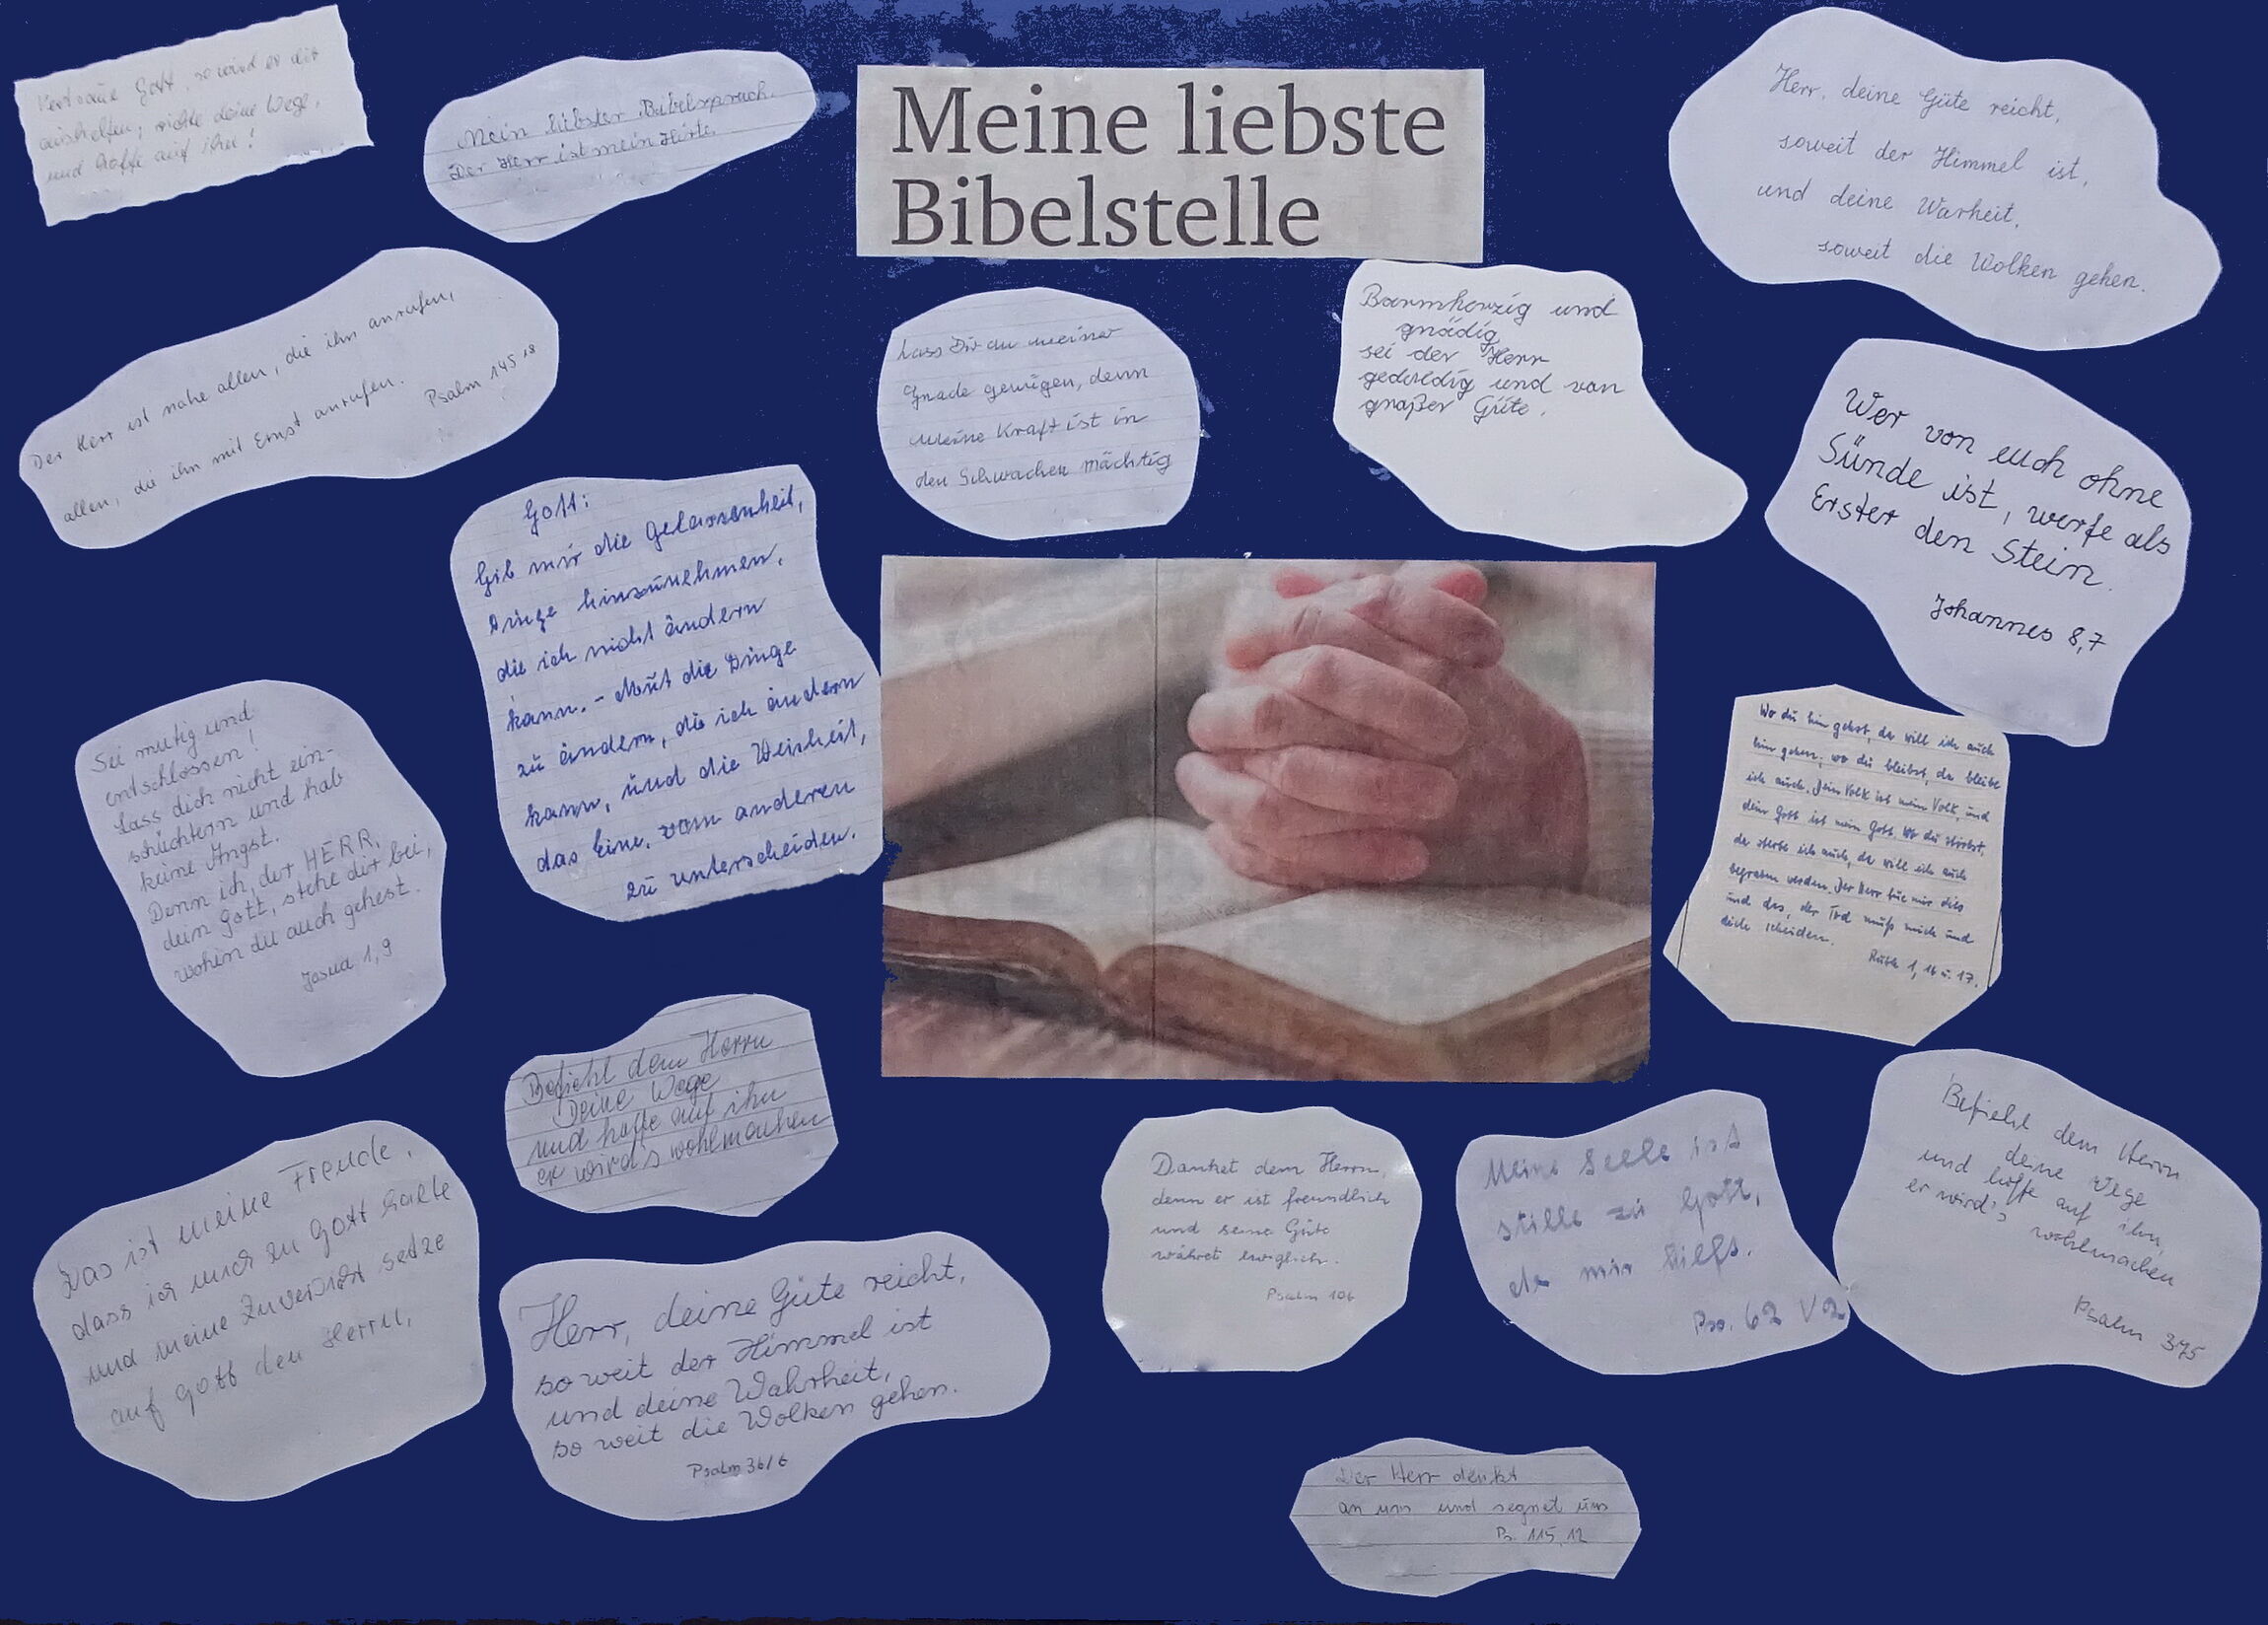 Meine liebste
Bibelstelle
Vertraue Gott, so wird er dir
aushelfen; richte deine Wege,
und hoffe auf ihn!
Mein liebster Bibelspruch.
Der Herr ist mein Hirte.
Herr, deine Güte reicht,
soweit der Himmel ist,
und deine Warheit,
soweit die Wolken gehen.
Der Herr ist nahe allen, die ihn anrufen,
allen, die ihn mit Ernst anrufen.
Psalm 145 18
Lass Dir an meiner
Gnade genügen, denn
meine Kraft ist in
den Schwachen mächtig
Barmherzig und
gnädig
sei der Herr
geduldig und von
großer Güte.
Wer von euch ohne
Sünde ist, werfe als
Erster den Stein.
Johannes 8,7
Gott:
Gib mir die Gelassenheit,
Dinge hinzunehmen,
die ich nicht ändern
kann. - Mut die Dinge
zu ändern, die ich ändern
kann, und die Weisheit,
das Eine, vom anderen
zu unterscheiden.
Sei mutig und
entschlossen!
Lass dich nicht ein-
schüchtern und hab
keine Angst.
Denn ich, der HERR,
dein Gott, stehe dir bei,
wohin du auch gehest.
Josua 1,9
Wo du hin gehst, da will ich auch
hin gehen, wo du bleibst, da bleibe
ich auch. Dein Volk ist mein Volk, und
dein Gott ist mein Gott. Wo du stirbst,
da sterbe ich auch, da will ich auch
begraben werden. Der Herr tue mir dies
und das, der Tod muß mich und
dich scheiden.
Ruth 1, 16 u. 17.
Befiehl dem Herrn
Deine Wege
und hoffe auf ihn
er wird's wohlmachen
Das ist meine Freude,
dass ich mich zu Gott halte
und meine Zuversicht setze
auf Gott den Herrn,
Herr, deine Güte reicht,
so weit der Himmel ist
und deine Wahrheit,
so weit die Wolken gehen.
Psalm 36/6
Danket dem Herrn,
denn er ist freundlich
und seine Güte
währet ewiglich.
Psalm 106
Meine Seele ist
stille zu Gott,
der mir hilft.
Ps. 62 V2
Befiehl dem Herrn
deine Wege
und hoffe auf ihn,
er wird's wohlmachen
Psalm 37,5
Der Herr denkt
an uns und segnet uns
Ps. 115,12